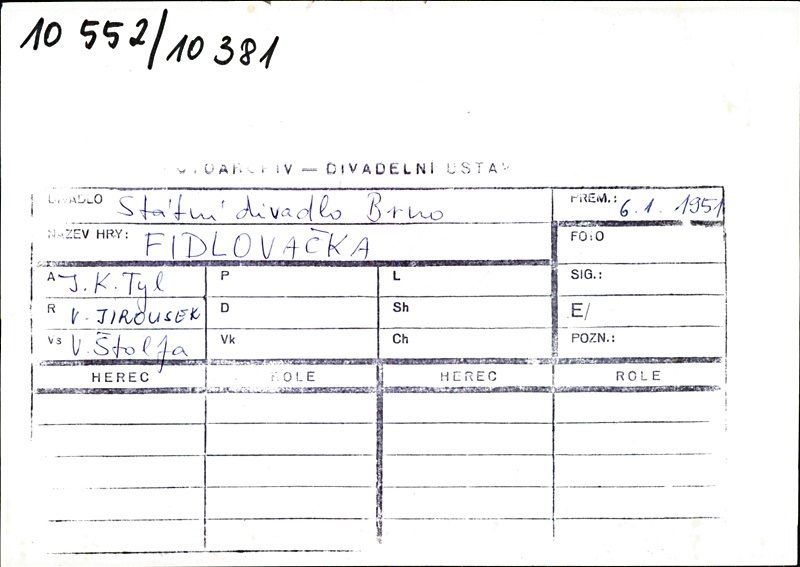 10 552/10 381
FOTOARCHIV — DIVADELNÍ ÚSTAV
DIVADLO Státní divadlo Brno PREM.: 6.1. 1951
NÁZEV HRY: FIDLOVAČKA FOTO
A J.K. Tyl P L SIG.:
R V. JIROUSEK D Sh E/
Vs V. Štolfa Vk Ch POZN.:
HEREC ROLE HEREC ROLE